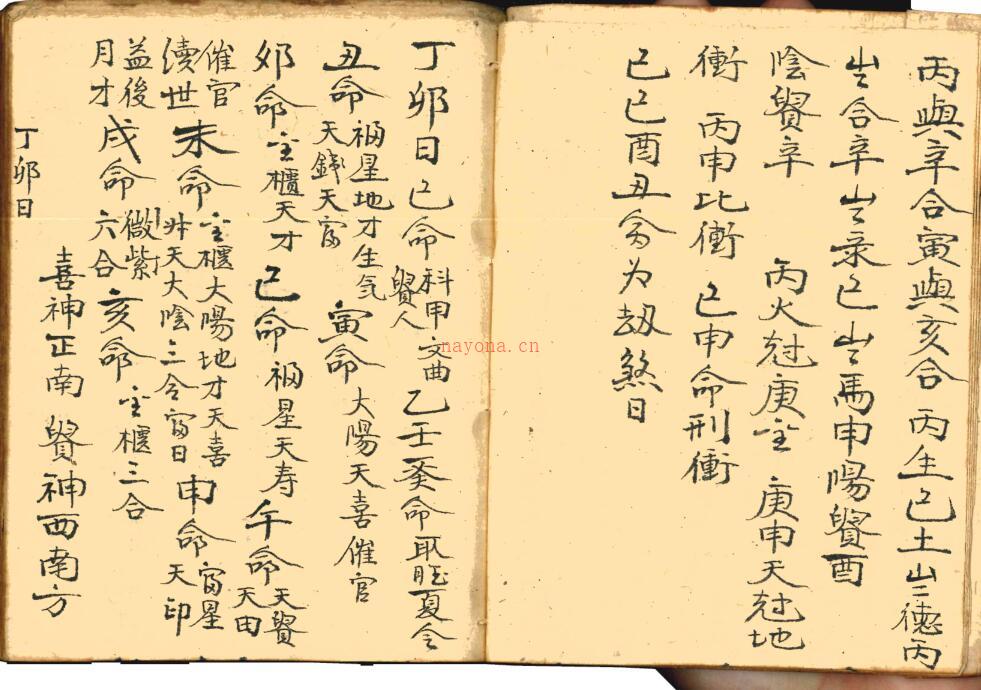 丙與辛合寅與亥合 丙生己土 岀二德丙
岀合辛岀录巳岀馬申陽貴酉
陰貴辛 丙火尅庚金 庚申天尅地
衝 丙申比衝 巳申命刑衝
己巳酉丑命为刼煞日
丁卯日 巳命科甲文曲貴人 乙壬癸命取旺夏令
丑命福星地才生気天錢天富 寅命大陽天喜催官
卯命金櫃天才 巳命福星天寿 午命天貴天田
催官續世 未命金櫃大陽地才天喜升天大陰三合富日 申命富星天印
益後月才 戌命微紫六合 亥命金櫃三合
喜神正南 貴神西南方
丁卯日
nayona.cn